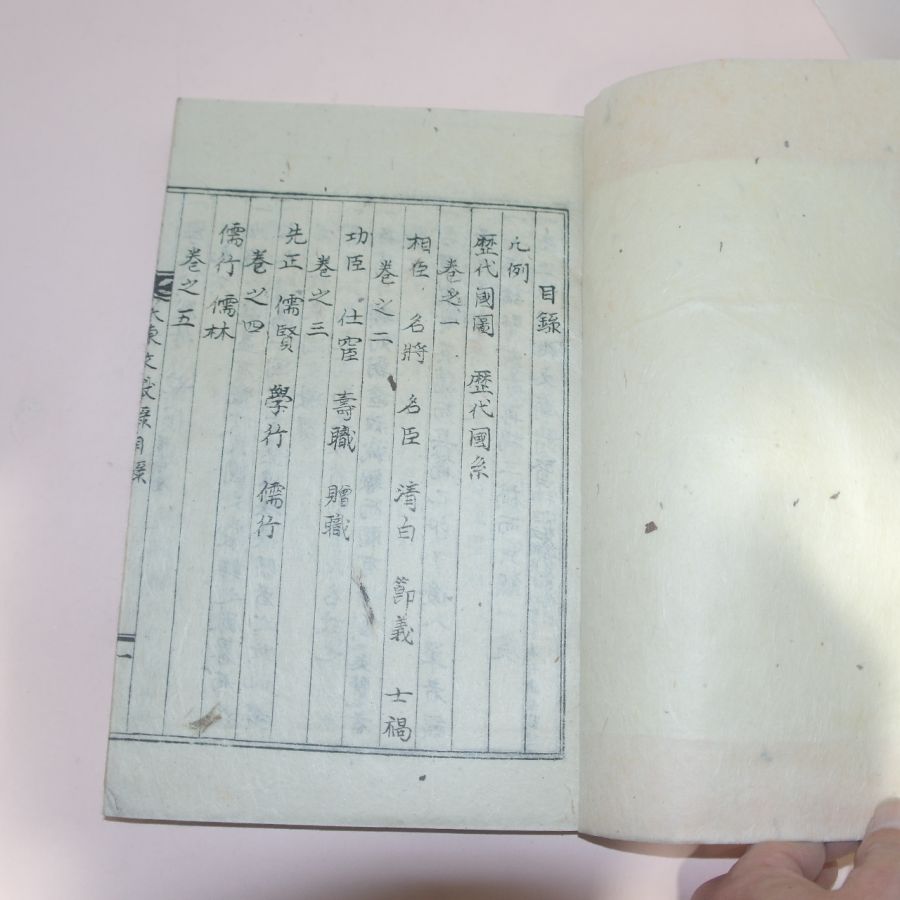 目錄
凡例
歷代國圖 歷代國系
卷之一
相臣 名將 名臣 清白 節義 士禍
卷之二
功臣 仕宦 壽職 贈職
卷之三
先正 儒賢 學行 儒行
卷之四
儒行 儒林
卷之五
大東文 目錄
一